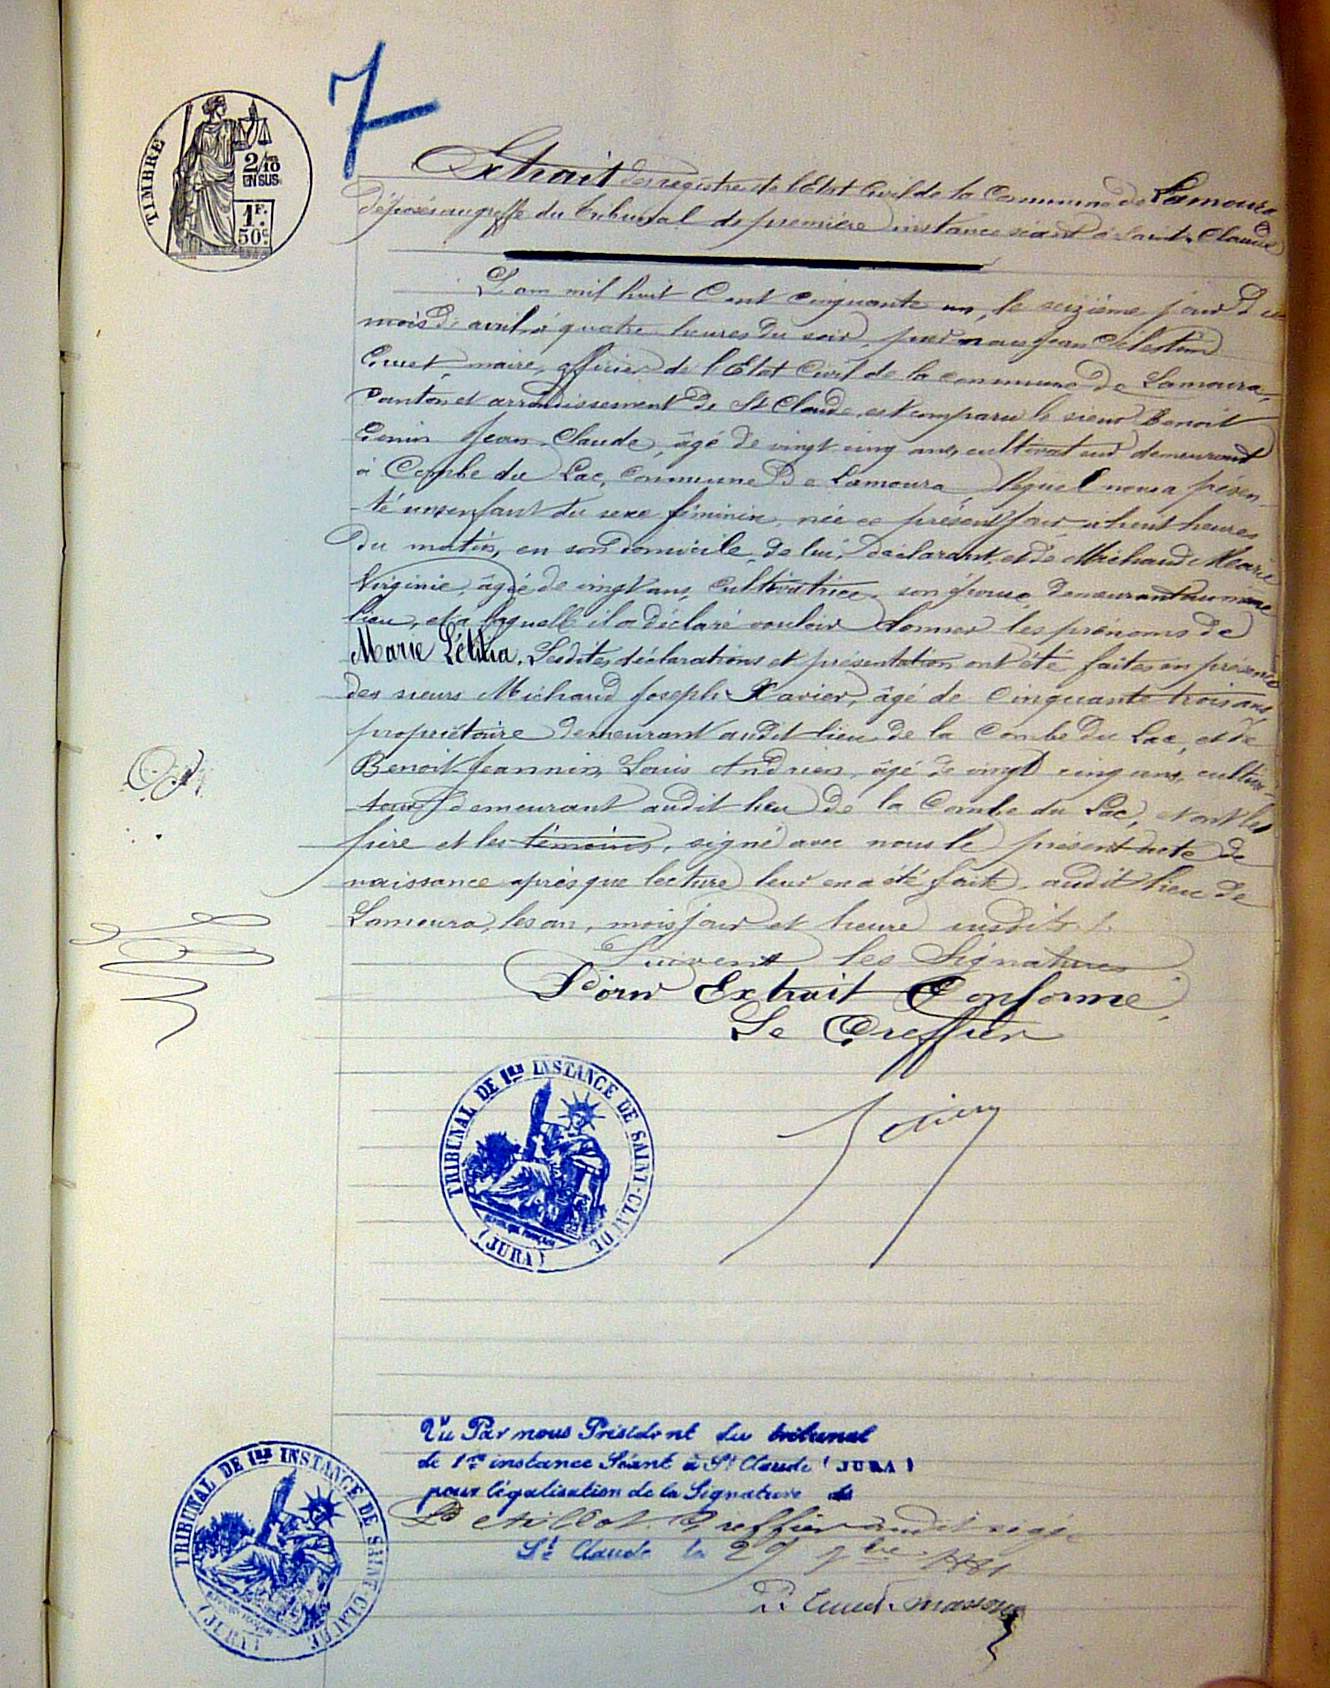 7
TIMBRE
2/10
EN SUS
1 F.
50 c.
Extrait des registres de l'Etat Civil de la Commune de Lamoura
déposés au greffe du Tribunal de première instance séant à Saint-Claude
L'an mil huit Cent cinquante un, le seizième jour du
mois de avril à quatre heures du soir, par nous Jean Célestin
maire, officier de l'Etat Civil de la commune de Lamoura,
canton et arrondissement de St Claude, est comparu le sieur Benoit
Jean Claude, âgé de vingt cinq ans, cultivateur demeurant
à Combe du Lac, commune de Lamoura, lequel nous a présen-
té un enfant du sexe féminin, née ce présent jour, à huit heures
du matin, en son domicile, de lui, déclarant, et de Michaud Marie
Virginie, âgée de vingt ans, cultivatrice, son épouse, demeurant au même
lieu, et a laquelle il a déclaré vouloir donner les prénoms de
Marie Létitia. Lesdites déclarations et présentation ont été faites en présence
des sieurs Michaud Joseph Xavier, âgé de cinquante trois ans,
propriétaire demeurant audit lieu de la Combe du Lac, et de
Benoit-Jeannin, Louis Andrien, âgé de vingt cinq ans, cultiva-
teur, demeurant audit lieu de la Combe du Lac, et ont les
père et les témoins, signé avec nous le présent acte de
naissance après que lecture leur en a été faite, audit lieu de
Lamoura, les an, mois jour et heure susdits.
Suivent les Signatures
Pour Extrait Conforme,
Le Greffier
TRIBUNAL DE 1RE INSTANCE DE SAINT-CLAUDE
(JURA)
Vu Par nous Président du tribunal
de 1re instance Séant à St Claude (JURA)
pour légalisation de la Signature de
Greffier audit siège
St Claude le 29 7bre 1881
TRIBUNAL DE 1RE INSTANCE DE SAINT-CLAUDE
(JURA)